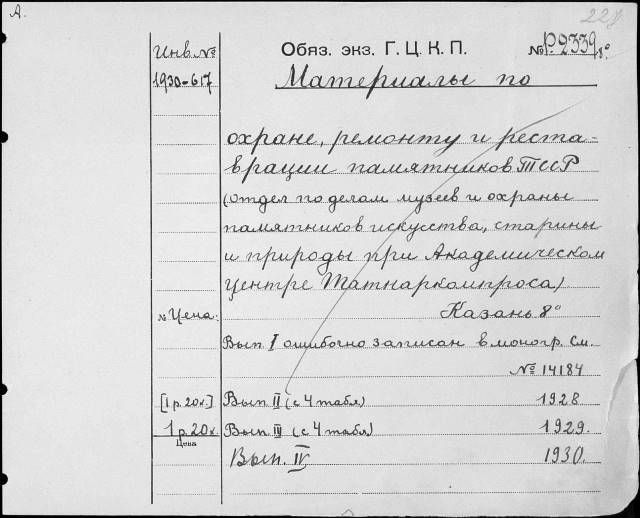 А. 228
Инв. № Обяз. экз. Г. Ц. К. П. № Р.2339 8°
1930-617 Материалы по
охране, ремонту и реста-
врации памятников ТССР
(Отдел по делам музеев и охраны
памятников искусства, старины
и природы при Академическом
центре Татнаркомпроса)
№ Цена: Казань 8°
Вып. I ошибочно записан в моногр. См.
№ 14184
[1 р. 20 к.] Вып II (с 4 табл) 1928
1 р. 20 к Вып III (с 4 табл) 1929.
Цена
Вып. IV 1930.